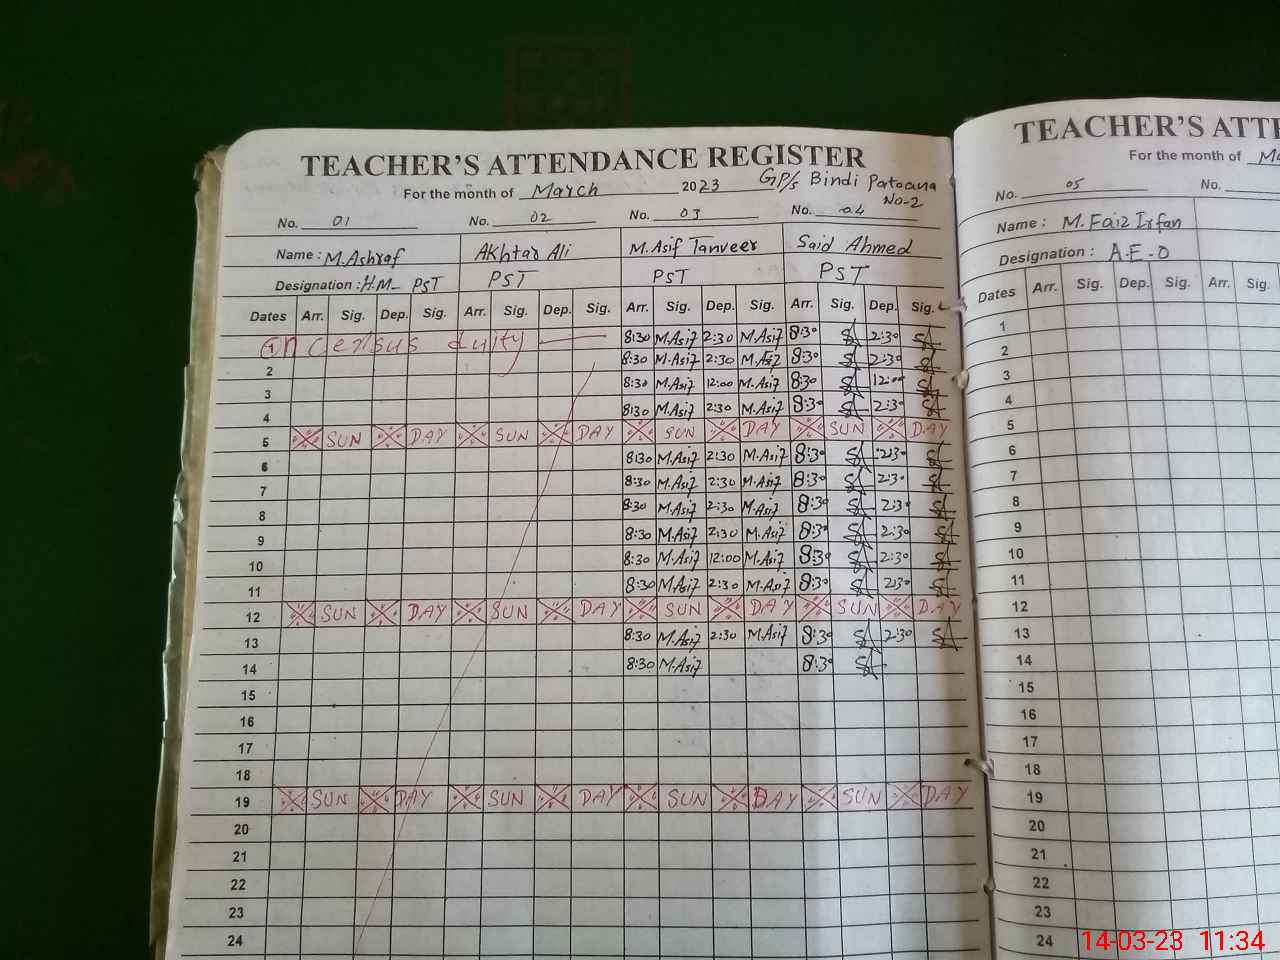 TEACHER'S ATTENDANCE REGISTER
For the month of March 2023 GP/s Bindi Patoana No-2
No. 01 No. 02 No. 03 No. 04
Name : M.Ashraf Akhtar Ali M.Asif Tanveer Said Ahmed
Designation : H.M- PST PST PST PST
Dates Arr. Sig. Dep. Sig. Arr. Sig. Dep. Sig. Arr. Sig. Dep. Sig. Arr. Sig. Dep. Sig.
1 On census duity 8:30 M.Asif 2:30 M.Asif 8:30 SA 2:30 SA
2 8:30 M.Asif 2:30 M.Asif 8:30 SA 2:30 SA
3 8:30 M.Asif 12:00 M.Asif 8:30 SA 12:00 SA
4 8:30 M.Asif 2:30 M.Asif 8:30 SA 2:30 SA
5 SUN DAY SUN DAY SUN DAY SUN DAY
6 8:30 M.Asif 2:30 M.Asif 8:30 SA 2:30 SA
7 8:30 M.Asif 2:30 M.Asif 8:30 SA 2:30 SA
8 8:30 M.Asif 2:30 M.Asif 8:30 SA 2:30 SA
9 8:30 M.Asif 2:30 M.Asif 8:30 SA 2:30 SA
10 8:30 M.Asif 12:00 M.Asif 8:30 SA 2:30 SA
11 8:30 M.Asif 2:30 M.Asif 8:30 SA 2:30 SA
12 SUN DAY SUN DAY SUN DAY SUN DAY
13 8:30 M.Asif 2:30 M.Asif 8:30 SA 2:30 SA
14 8:30 M.Asif 8:30 SA
15
16
17
18
19 SUN DAY SUN DAY SUN DAY SUN DAY
20
21
22
23
24
TEACHER'S ATTE
For the month of Ma
No. 05 No.
Name : M. Faiz Irfan
Designation : A.E.O
Dates Arr. Sig. Dep. Sig. Arr. Sig.
1
2
3
4
5
6
7
8
9
10
11
12
13
14
15
16
17
18
19
20
21
22
23
24
14-03-23 11:34